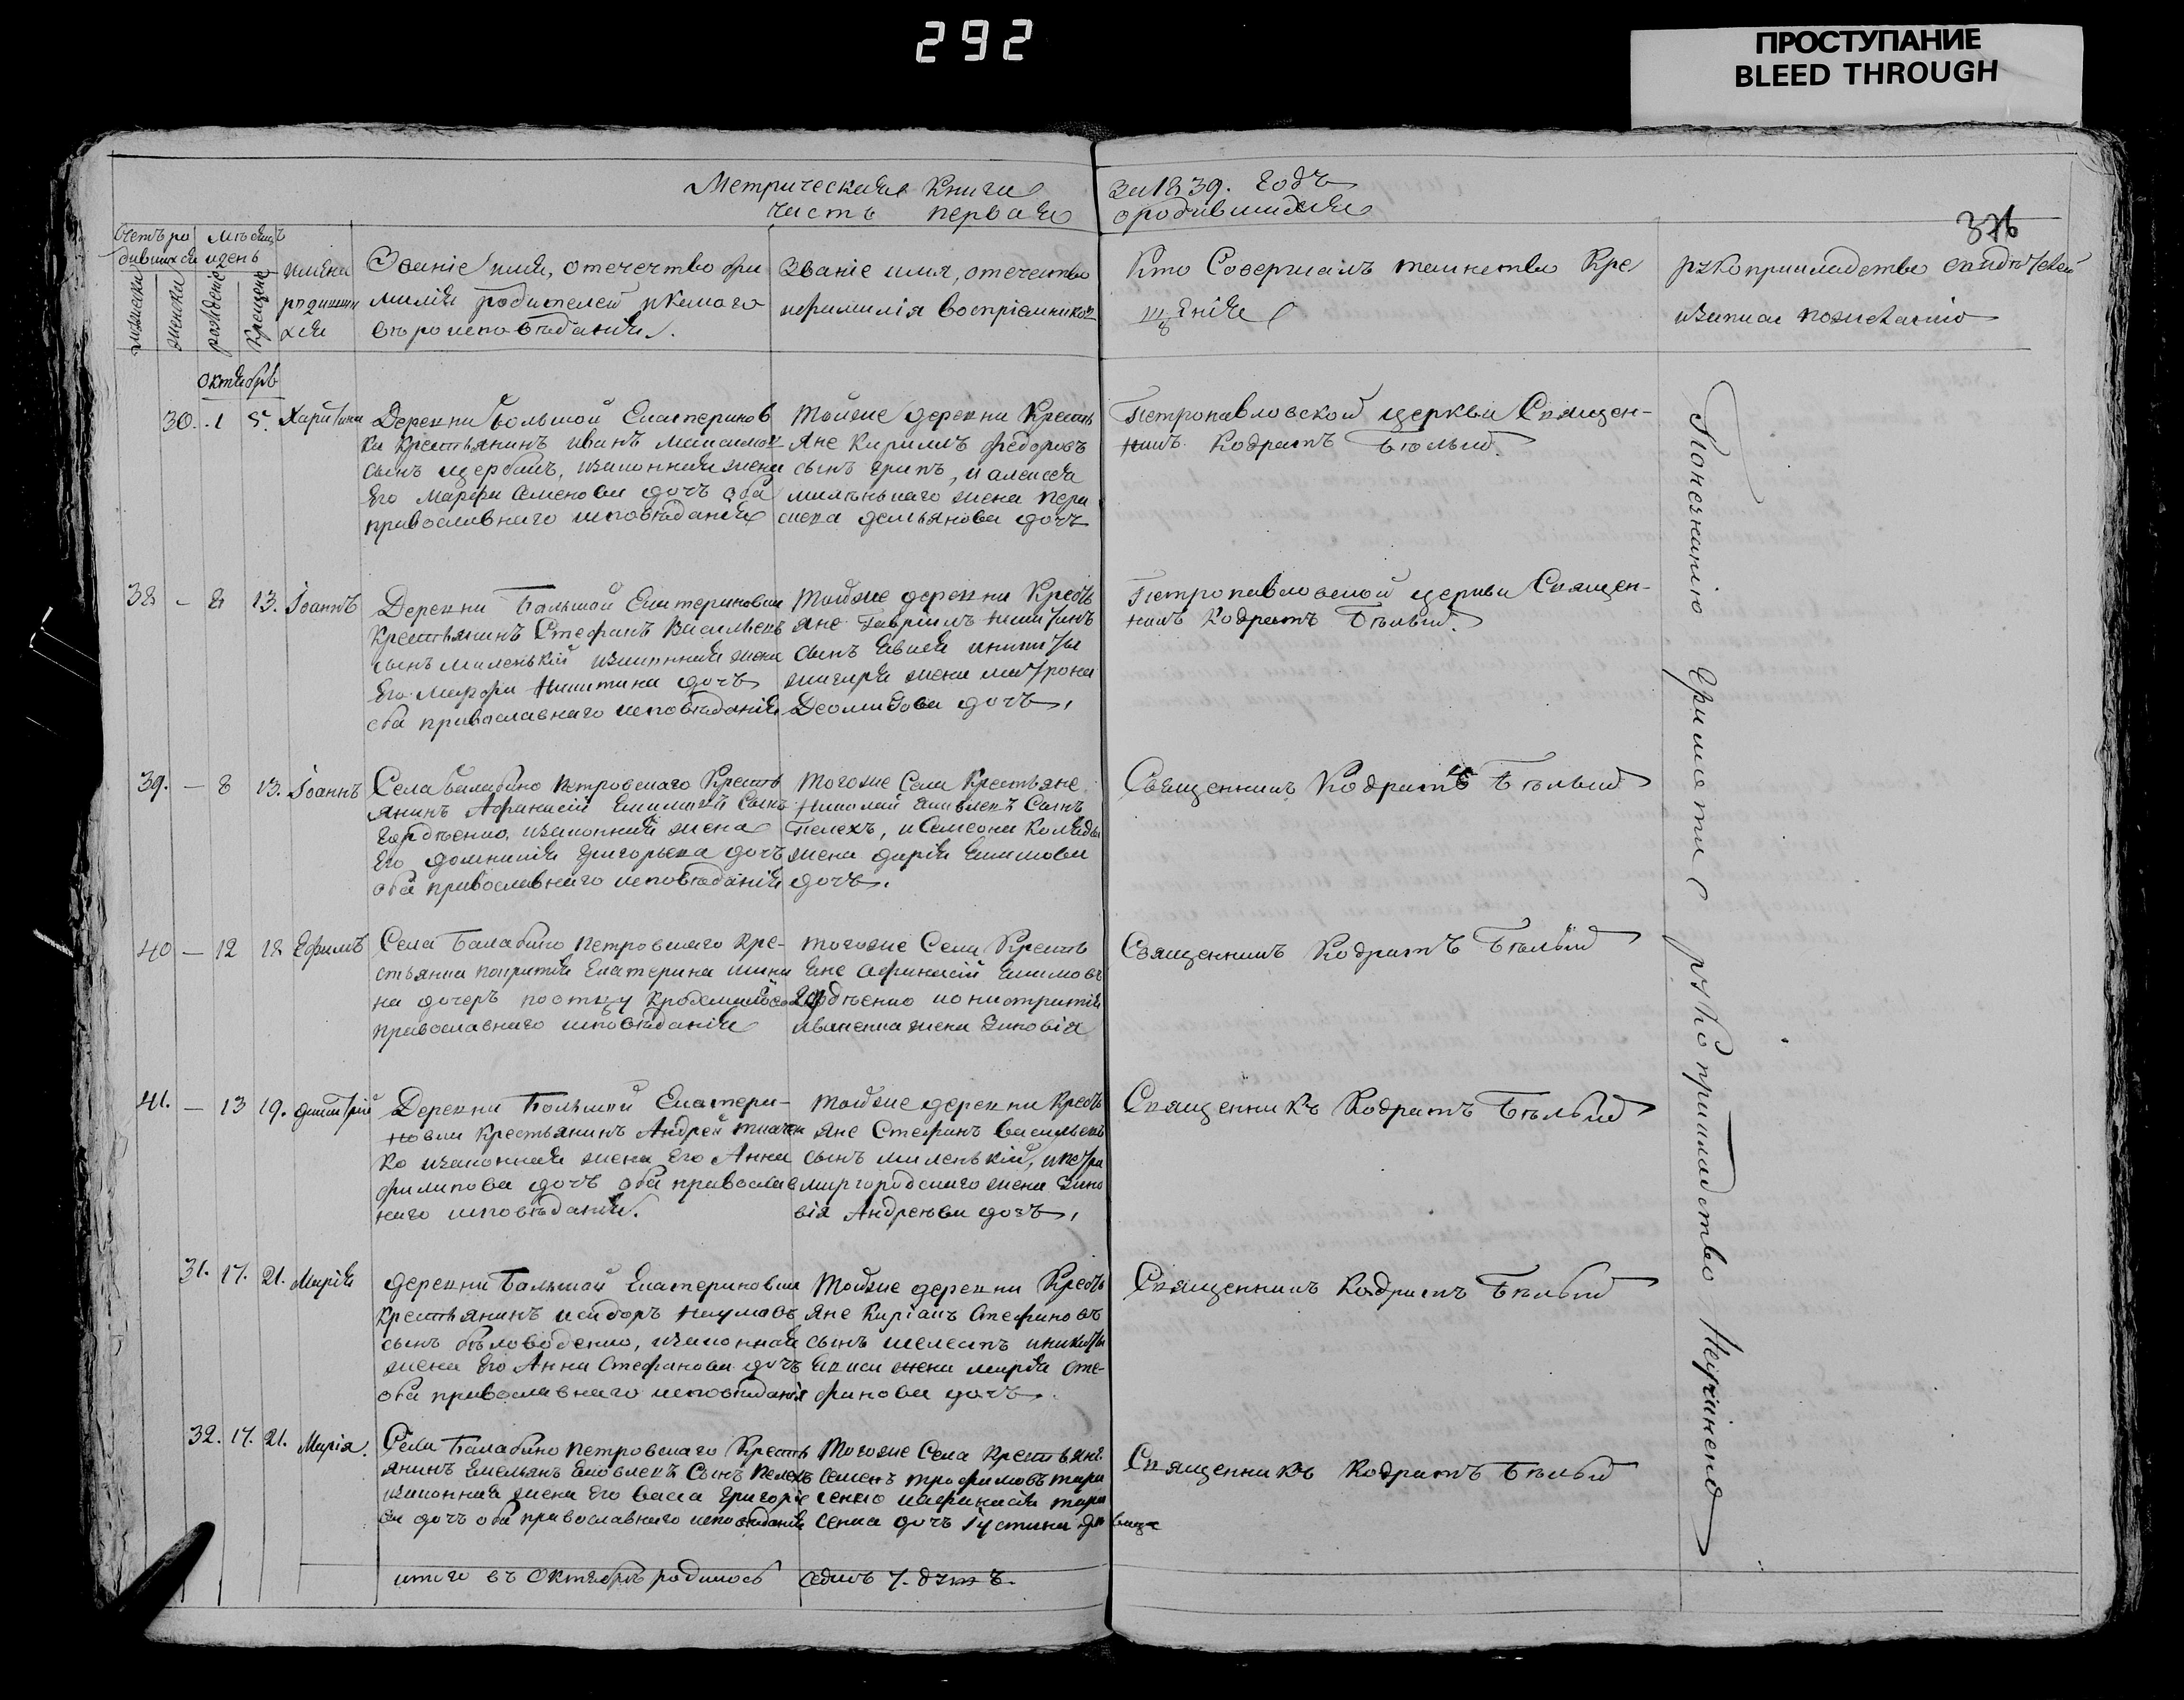 292
ПРОСТУПАНИЕ
BLEED THROUGH
Метрическия Книги за 1839. годъ
часть первая о родившихся
376
Счетъ ро
дившихся
мѣсяцъ
и день
мужески
женски
рожденіе
Крещеніе
имена
родивши
хся
Званіе имя, отечество фа
милія родителей и какого
вѣроисповѣданія.
Званіе имя, отечество
и фамилія воспріемниковъ
Кто Совершалъ таинство Кре
щенія
рукоприкладство свидѣтелей
записи по желанію
октябрь
30. 1 5. Харитина
Деревни большой Екатеринов
ки Крестьянинъ иванъ
сынъ щербакъ, изаконная жена
Его Марфа Семенова дочъ оба
православнаго исповѣданія
тойже деревни Кресть
яне Кирилъ федоровъ
сынъ грипъ, и алексѣя
миленькаго жена пара
скева демьянова дочъ
Петропавловской церкви Священ-
никъ Кодратъ Бѣлый.
38 - 8 13. Іоаннъ
Деревни Большой Екатериновки
Крестьянинъ Стефанъ Васильевъ
сынъ миленькій изаконная жена
Его Марфа Никитина дочъ
оба православнаго исповѣданія
тойже деревни Кресть
яне Гавріилъ Никитинъ
сынъ и никиты
жигаря жена матрона
Деомидова дочъ,
Петропавловской церкви Священ-
никъ Кодратъ Бѣлый.
39. - 8 13. Іоаннъ
Села балабино Петровскаго Кресть
янинъ Афанасій Екимовъ Сынъ
Гордѣенко, изаконная жена
Его домникія григорьева дочъ
оба православнаго исповѣданія
тогоже Села Крестьяне
Николай яковлевъ Сынъ
Пелехъ, и Самсона Коляды
жена дарія Екимова
дочъ.
Священникъ Кодратъ Бѣлый
40 - 12 18 Ефимъ
Села Балабино Петровскаго Кре-
стьянка покрытка Екатерина
на дочеръ по отцу
православнаго исповѣданія
тогоже Села Кресть
яне афанасій Екимовъ
Гордѣенко и
жена Зиновія
Священникъ Кодратъ Бѣлый
41. - 13 19. димитрій
Деревни Большой Екатери-
новки Крестьянинъ Андрей ткачен
ко изаконная жена Его Анна
филипова дочъ оба православ
наго исповѣданія.
тойже деревни Кресть
яне Стефанъ Васильевъ
сынъ миленькій, и петра
миргородскаго жена Зино
вія Андреева дочъ,
Священникъ Кодратъ Бѣлый
31. 17. 21. Марія
деревни Большой Екатериновки
Крестьянинъ исидоръ наумовъ
сынъ бѣловоденко, изаконная
жена Его Анна Стефанова дочъ
оба православнаго исповѣданія
тойже деревни Кресть
яне Киріакъ Стефановъ
сынъ шелестъ и никиты
жена марія сте-
фанова дочъ.
Священникъ Кодратъ Бѣлый
32. 17. 21. Марія.
Села Балабино Петровскаго Кресть
янинъ Емельянъ Яковлевъ Сынъ Пелехъ
изаконная жена Его Васса григоріе
ва дочъ оба православнаго исповѣданія
тогоже Села Крестьяне
Семенъ трофимовъ тара
сенко и афанасія тара
сенка дочъ Іустина дѣвица
Священникъ Кодратъ Бѣлый
итого въ Октябрѣ родилось седмъ 7. душъ.